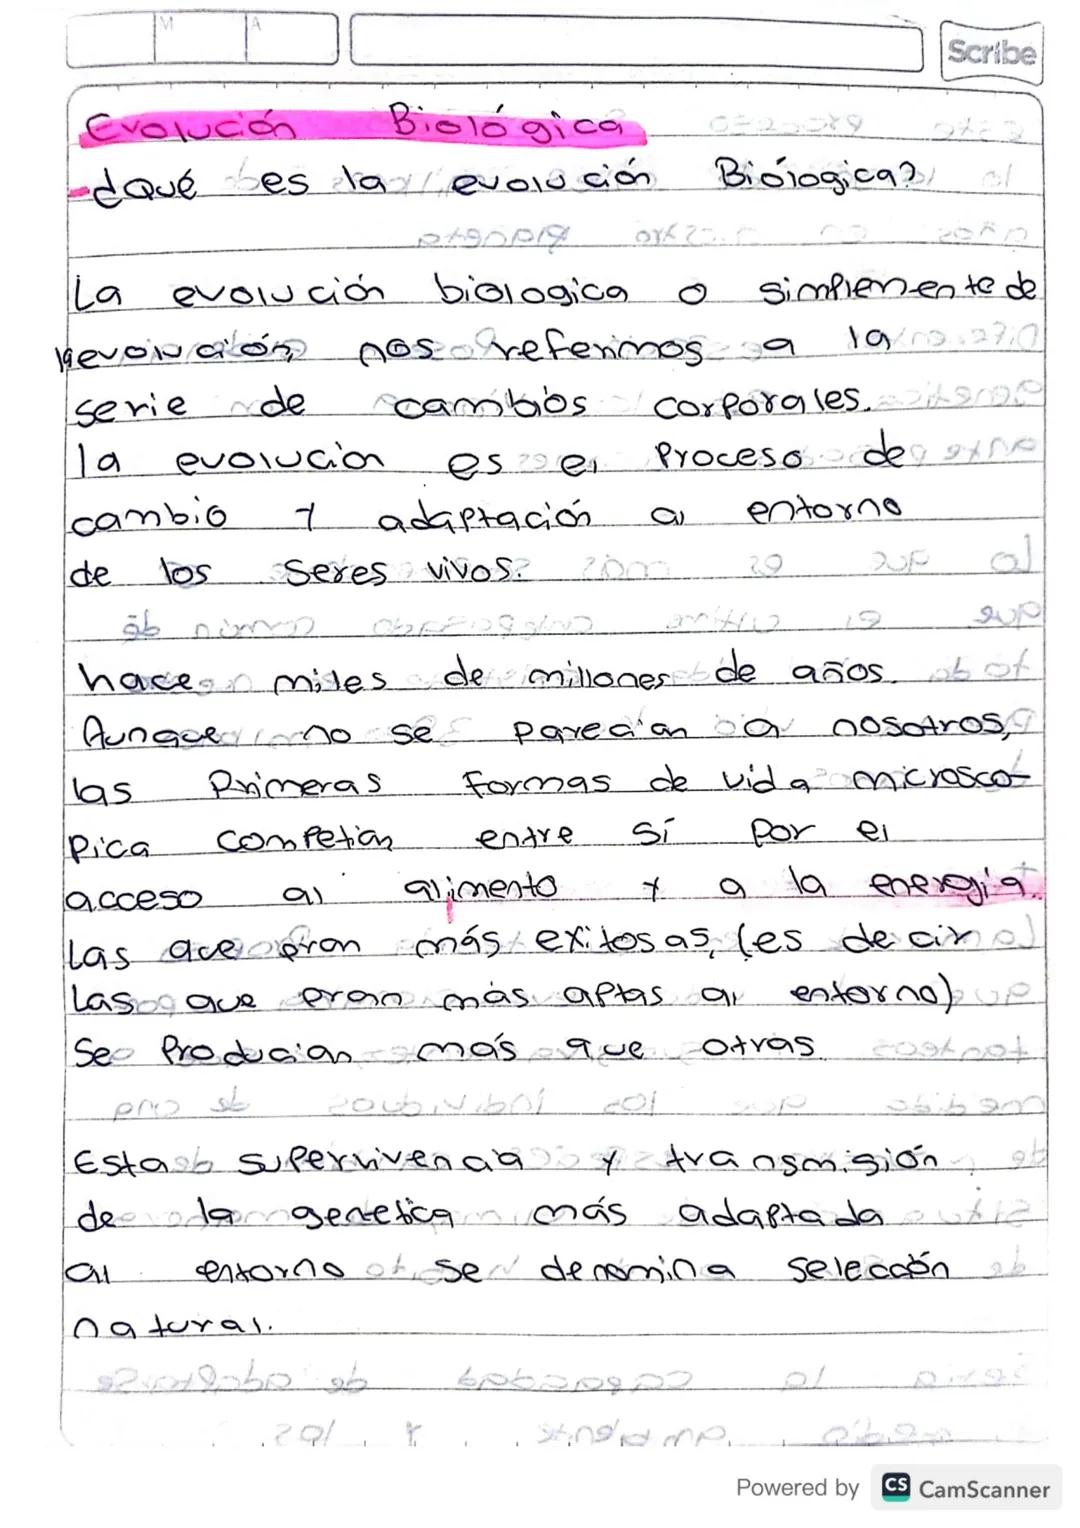 M A
Scribe
Evolución Biológica
-¿Qué es la evolución Biólogica?
La evolución biologica o simplemente de
la evolución, nos referimos a la
serie de cambios corporales.
la evolución es el Proceso de
cambio y adaptación al entorno
de los seres vivos.
hace miles de millones de años.
Aunque no se parecian a nosotros,
las Primeras formas de vida microsco-
Pica competian entre sí por el
acceso al alimento y a la energía.
Las que eran más exitosas, (es decir
Las que eran más aptas al entorno)
Se Producian más que otras.
Esta supervivencia y transmisión
de la genetica más adaptada
al entorno se denomina selección
natural.
Powered by CS CamScanner